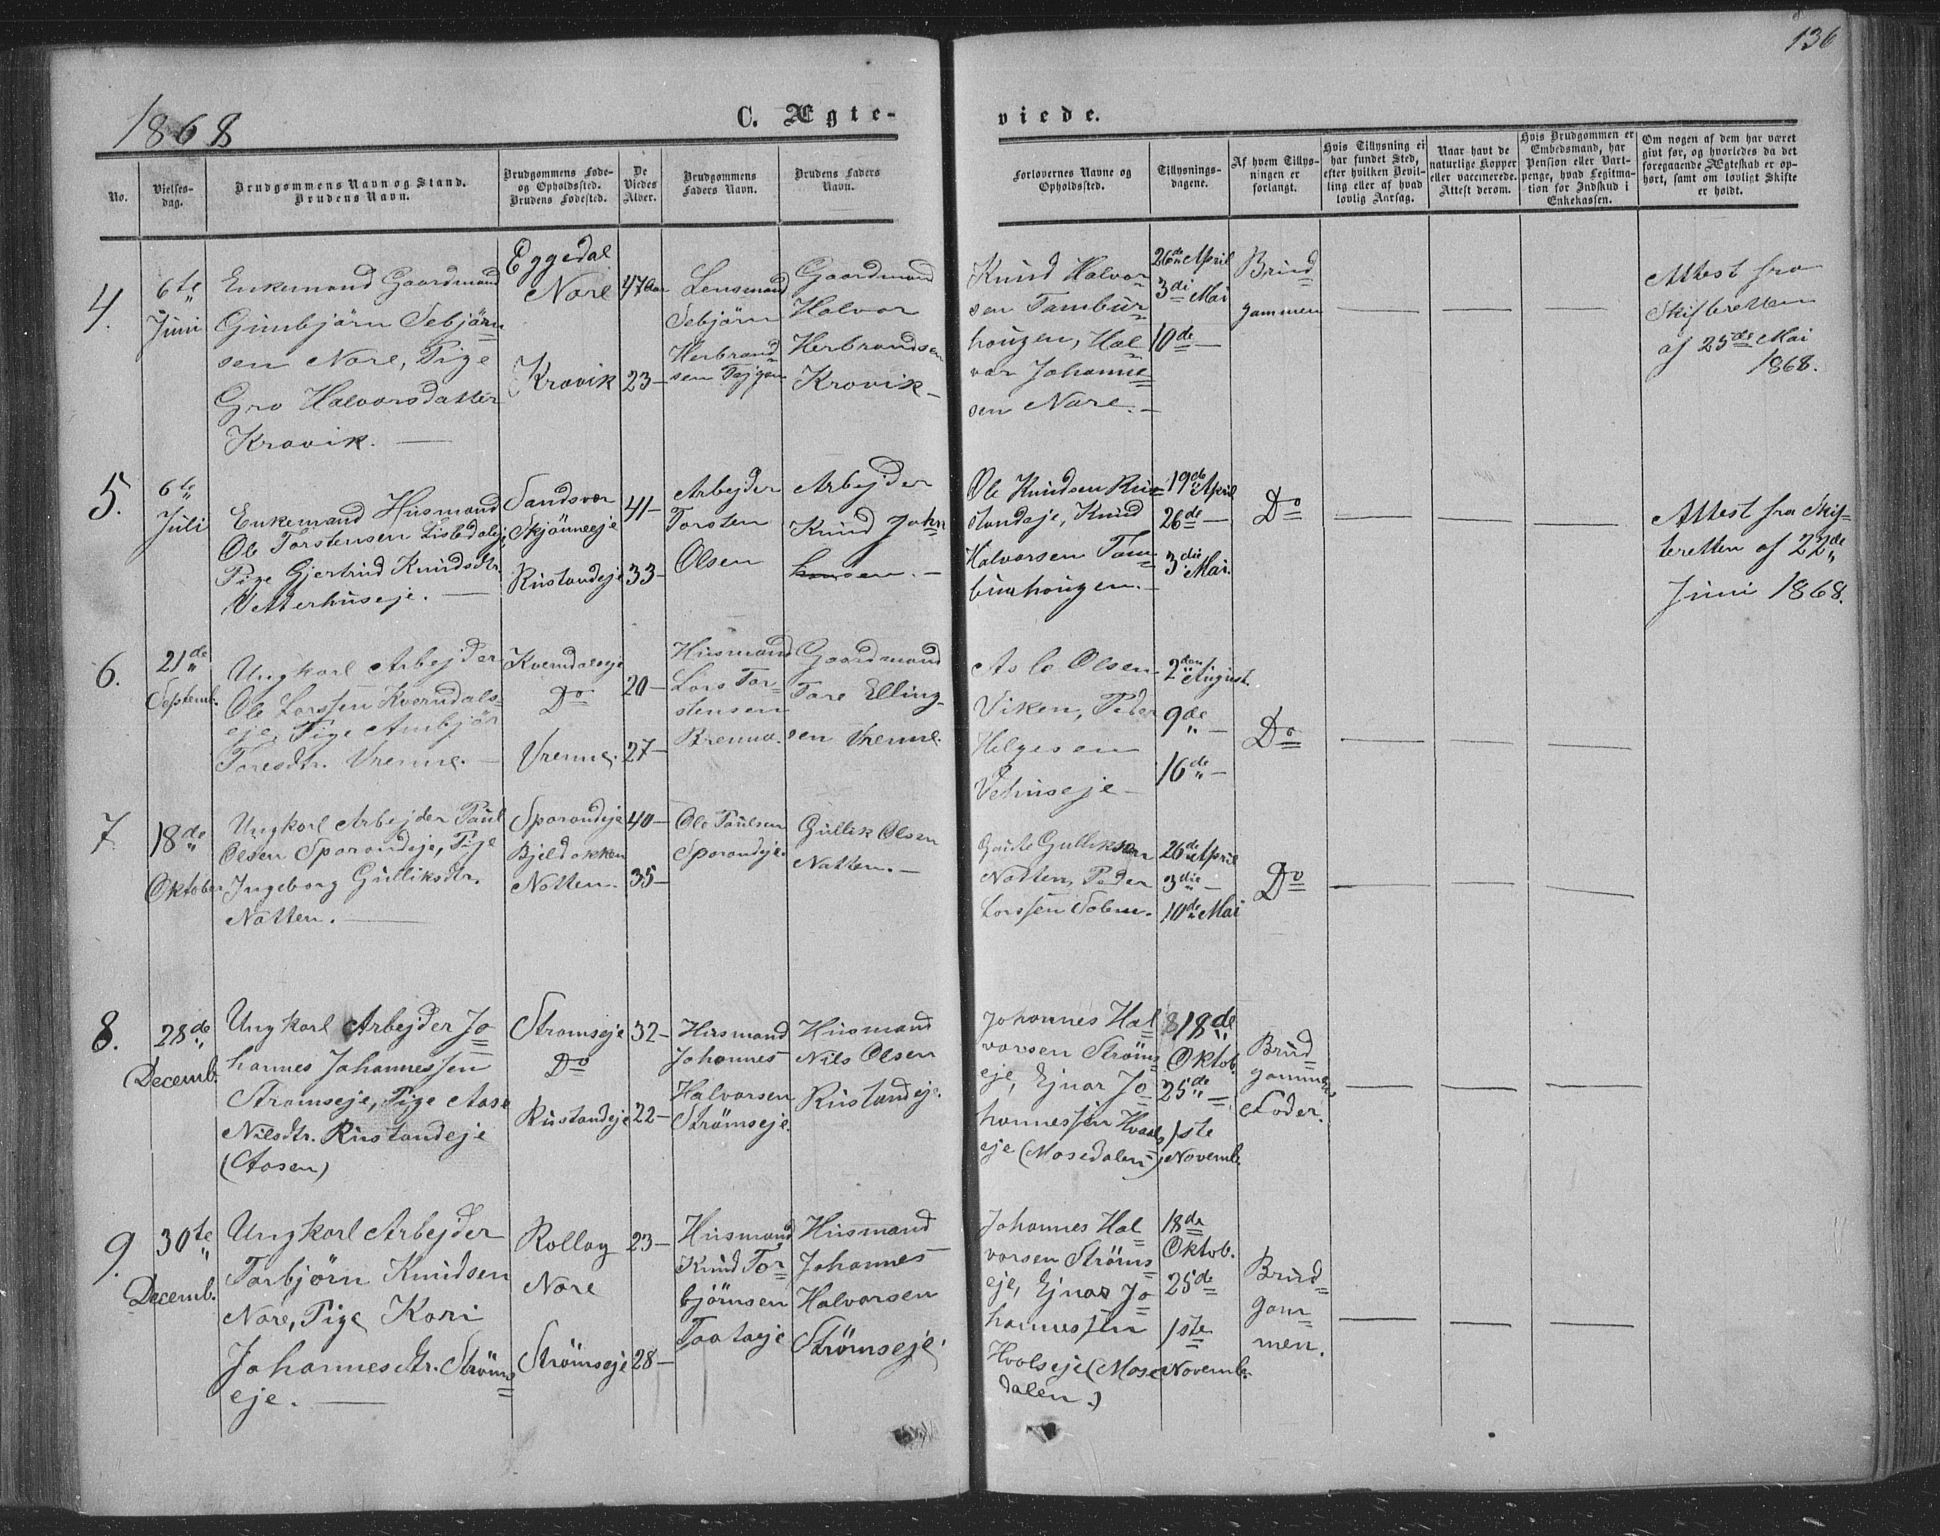 136
1868
C. Ægte-
viede.
No.
Vielses-
dag.
Brudgommens Navn og Stand.
Brudens Navn.
Brudgommens Føde-
og Opholdssted.
Brudens Fødested.
De
Viedes
Alder.
Brudgommens
Faders Navn.
Brudens Faders
Navn.
Forlovernes Navne og
Opholdssted.
Tillysnings-
dagene.
Af hvem Tillys-
ningen er
forlangt.
Hvis Tillysning ei
har fundet Sted,
efter hvilken Bevil-
ling eller af hvad
lovlig Aarsag.
Naar havt de
naturlige Kopper
eller vaccinerede.
Attest derom.
Hvis Brudgommen er
Embedsmand, har
Pension eller Vart-
penge, hvad Legitma-
tion for Indskud i
Enkekassen.
Om nogen af dem har været
givt før, og hvorledes da det
foregaaende Ægteskab er op-
hørt, samt om lovligt Skifte
er holdt.
4.
6te
Juni
Enkemand Gaardmand
Gunbjörn Sebjörn
sen Nore, Pige
Gro Halvorsdatter
Kravik. —
Eggedal
Nore
Kravik
47 Aar
23 —
Lensmand
Sebjörn
Herbrand
sen
Gaardmand
Halvor
Herbrandsen
Kravik —
Knud Halvor
sen Tambur
hougen, Hal
vor Johanne
sen Nore. —
26de April
3di Mai
10de —
Brud
gommen
— — —
Attest fra
Skifteretten
af 25de Mai
1868.
5.
6te
Juli
Enkemand Husmand
Ole Torstensen
Pige Gjertrud Knudsdtr.
Vetterhuseje. —
Sandsvær
Skjönneeje
Rustandeje
41 —
33 —
Arbejder
Torsten
Olsen
Arbejder
Knud John
sen. —
Ole Knudsen Ru
standeje, Knud
Halvorsen Tam
burhougen. —
19de April
26de —
3die Mai.
Do
— — —
Attest fra Skif
teretten af 22de
Juni 1868.
6.
21de
Septemb.
Ungkarl Arbejder
Ole Larssen Kverndals
eje, Pige Ambjör
Toresdtr. Vrenne. —
Kverndalseje
Do
Vrenne.
20 —
27 —
Husmand
Lars Tor
stensen
Brenna.
Gaardmand
Tore Elling
sen Vrenne.
Asle Olsen
Viken, Peder
Helgesen
Vehuseje —
2den August.
9de —
16de —
Do
— — —
7
18de
Oktober
Ungkarl Arbejder Paul
Olsen Sporandeje, Pige
Ingeborg Gulliksdtr.
Natten. —
Sporandeje
Bjeldokken
Natten.
40 —
35 —
Ole Paulsen
Sporandeje.
Gullik Olsen
Natten. —
Goute Gulliksen
Natten, Peder
Larssen
26de April
3die —
10de Mai
Do
— — —
8.
28de
Decemb.
Ungkarl Arbejder Jo
hannes Johannessen
Strømseje, Pige Aase
Nilsdtr. Rustandeje
(Aasen)
Strømseje
Do
Rustandeje
32 —
22 —
Husmand
Johannes
Halvorsen
Strømseje
Husmand
Nils Olsen
Rustandeje.
Johannes Hal
vorsen Strøms
eje, Ejnar Jo
hannessen Hvals
eje (Mosedalen)
18de
Oktob.
25de —
1ste
Novemb.
Brud
gommens
Fader.
— — —
9.
30te
Decemb.
Ungkarl Arbejder
Torbjörn Knudsen
Nore, Pige Kari
Johannesdtr. Ströms
eje. —
Rollag
Nore
Strömseje
23 —
28 —
Husmand
Knud Tor
björnsen
Husmand
Johannes
Halvorsen
Strömseje.
Johannes Hal
vorsen Ströms
eje, Ejnar Jo
hannessen
Hvalseje (Mose
dalen.)
18de
Oktob.
25de
1ste
Novemb.
Brud
gom
men.
— — —